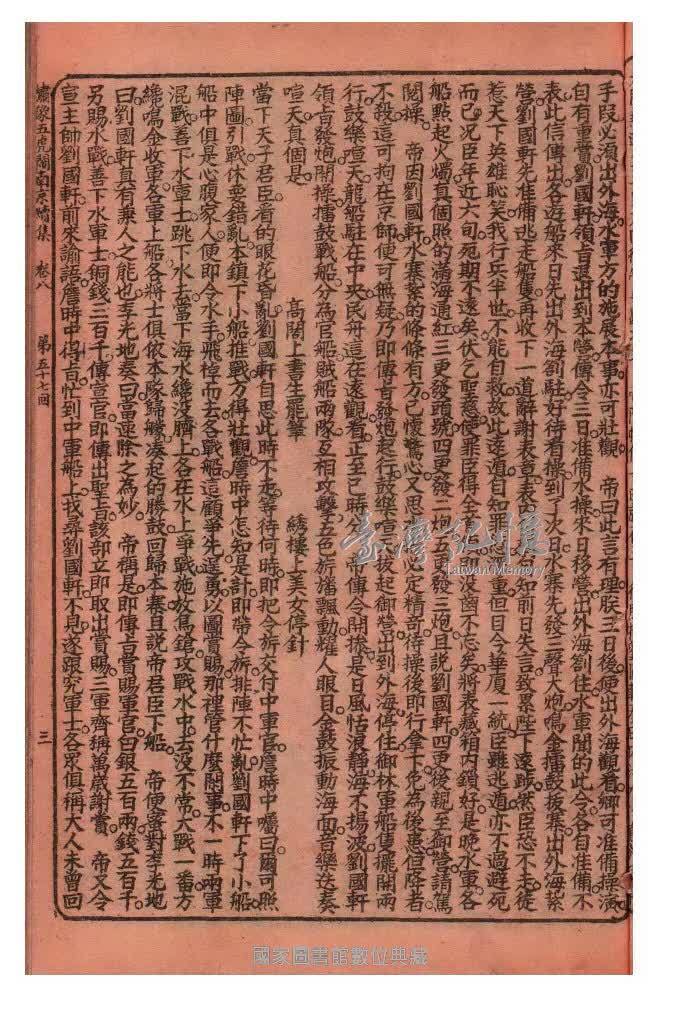 手段必須出外海水軍方的施展本事亦可壯觀　帝曰此言有理朕三日後便出外海觀看卿可准俻操演
自有重賞劉國軒領旨退出到本營傳令三日准俻水操來日移營出外海劄住水軍聞的此令各自准俻不
表此信傳出各遊船來日先出外海劄駐好待看操到了次日水寨先發三聲大炮鳴金擂鼓拔寨出外海紮
營劉國軒先准俻逃走船隻再收下一道辭謝表章表內
知前日失言致累陛下遠涉
臣恐不走徒
惹天下英雄恥笑我行兵半世不能自救故此遠遁自知罪
重但日今華厦一統臣雖逃遁亦不過避死
而已况臣年近六旬死期不遠矣伏乞聖慈使罪臣得全
没齒不忘矣將表藏箱內鎖好是晚水軍各
船點起火燭真個照的滿海通紅三更發頭號四更發二炮五
發三炮且說劉國軒四更後親至御營請駕
閱操　帝因劉國軒水寨紮的條條有方已懷驚心又思
心定精竒待操後即行拿下免為後患但降者
不殺這可拘在京師便可無疑乃即傳旨發炮起行鼓樂喧
拔起御營出到外海停住御林軍船隻擺開兩
行鼓樂喧天龍船駐在中央民舟這在遠觀看正至已時分　帝傳令開操是日風恬浪靜海不揚波劉國軒
領旨發炮開操擂鼓戰船分為官船賊船兩隊互相攻擊五色旂旛飄動耀人眼目金鼓振動海面音樂迭奏
喧天真個是
高閣上書生罷筆　　綉樓上美女停針
當下天子君臣看的眼花昏亂劉國軒自思此時不走等待何時即把令旂交付中軍官詹時中囑曰爾可照
陣圖引戰休要錯亂本鎮下小船推戰方得壯觀詹時中怎知是計即帶令旂排陣不忙亂劉國軒下了小船
船中俱是心腹家人便即令水手飛棹而去各戰船這顧爭先逞勇以圖賞賜那裡管什麼閒事不一時兩軍
混戰善下水軍士跳下水去當下海水纔没臍上各在水上爭戰施放鳥鎗攻戰水中去没不常大戰一番方
纔鳴金收軍各軍上船各將士俱依本隊歸艤湊起的勝鼓回歸本寨且說帝君臣下船　帝便密對李光地
曰劉國軒真有兼人之能也李光地奏曰當速除之為妙　帝稱是即傳旨賞賜軍官白銀五百兩錢五百千
另賜水戰善下水軍士銅錢三百千傳宣官即傳出聖旨該部立即取出賞賜三軍齊稱萬歲謝賞　帝又令
宣主帥劉國軒前來諭語詹時中得旨忙到中軍船上找尋劉國軒不見遂跟究軍士各衆俱稱大人未曾回
繪像五虎鬧南京續集　卷八　　第五十七回　　三
臺灣記憶
Taiwan Memory
國家圖書館數位典藏